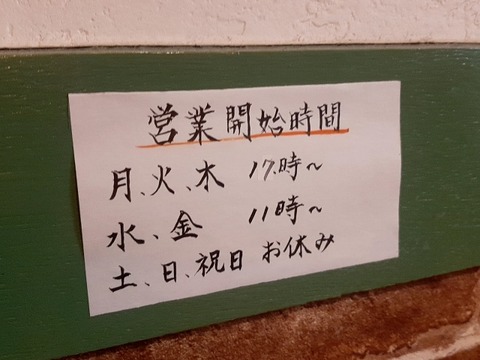 営業開始時間
月、火、木 17時～
水、金 11時～
土、日、祝日 お休み